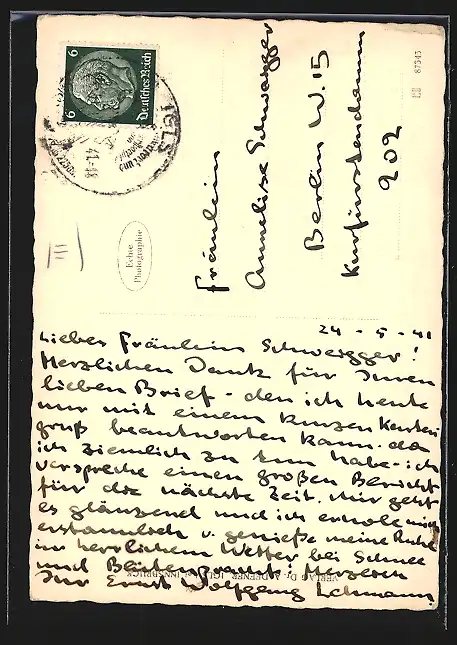 Fräulein
Annelise Schweigger
Berlin W. 15
Kurfürstendamm
202
Deutsches Reich
6
6
IGLS
Echte
Photographie
III
87345
24 - 5 - 41
Liebes Fräulein Schweigger!
Herzlichen Dank für Ihren
lieben Brief - den ich heute
nur mit einem kurzen Karten
gruß beantworten kann - da
ich ziemlich zu tun habe - ich
verspreche einen großen Bericht
für die nächste Zeit. Mir geht
es glänzend und ich erhole mich
erstaunlich u. genieße meine Ruhe
in herrlichem Wetter bei Schnee
und Blütenpracht! Herzlich
Ihr Ernst Wolfgang Lehmann
VERLAG Dr. A. DEFNER, IGLS INNSBRUCK